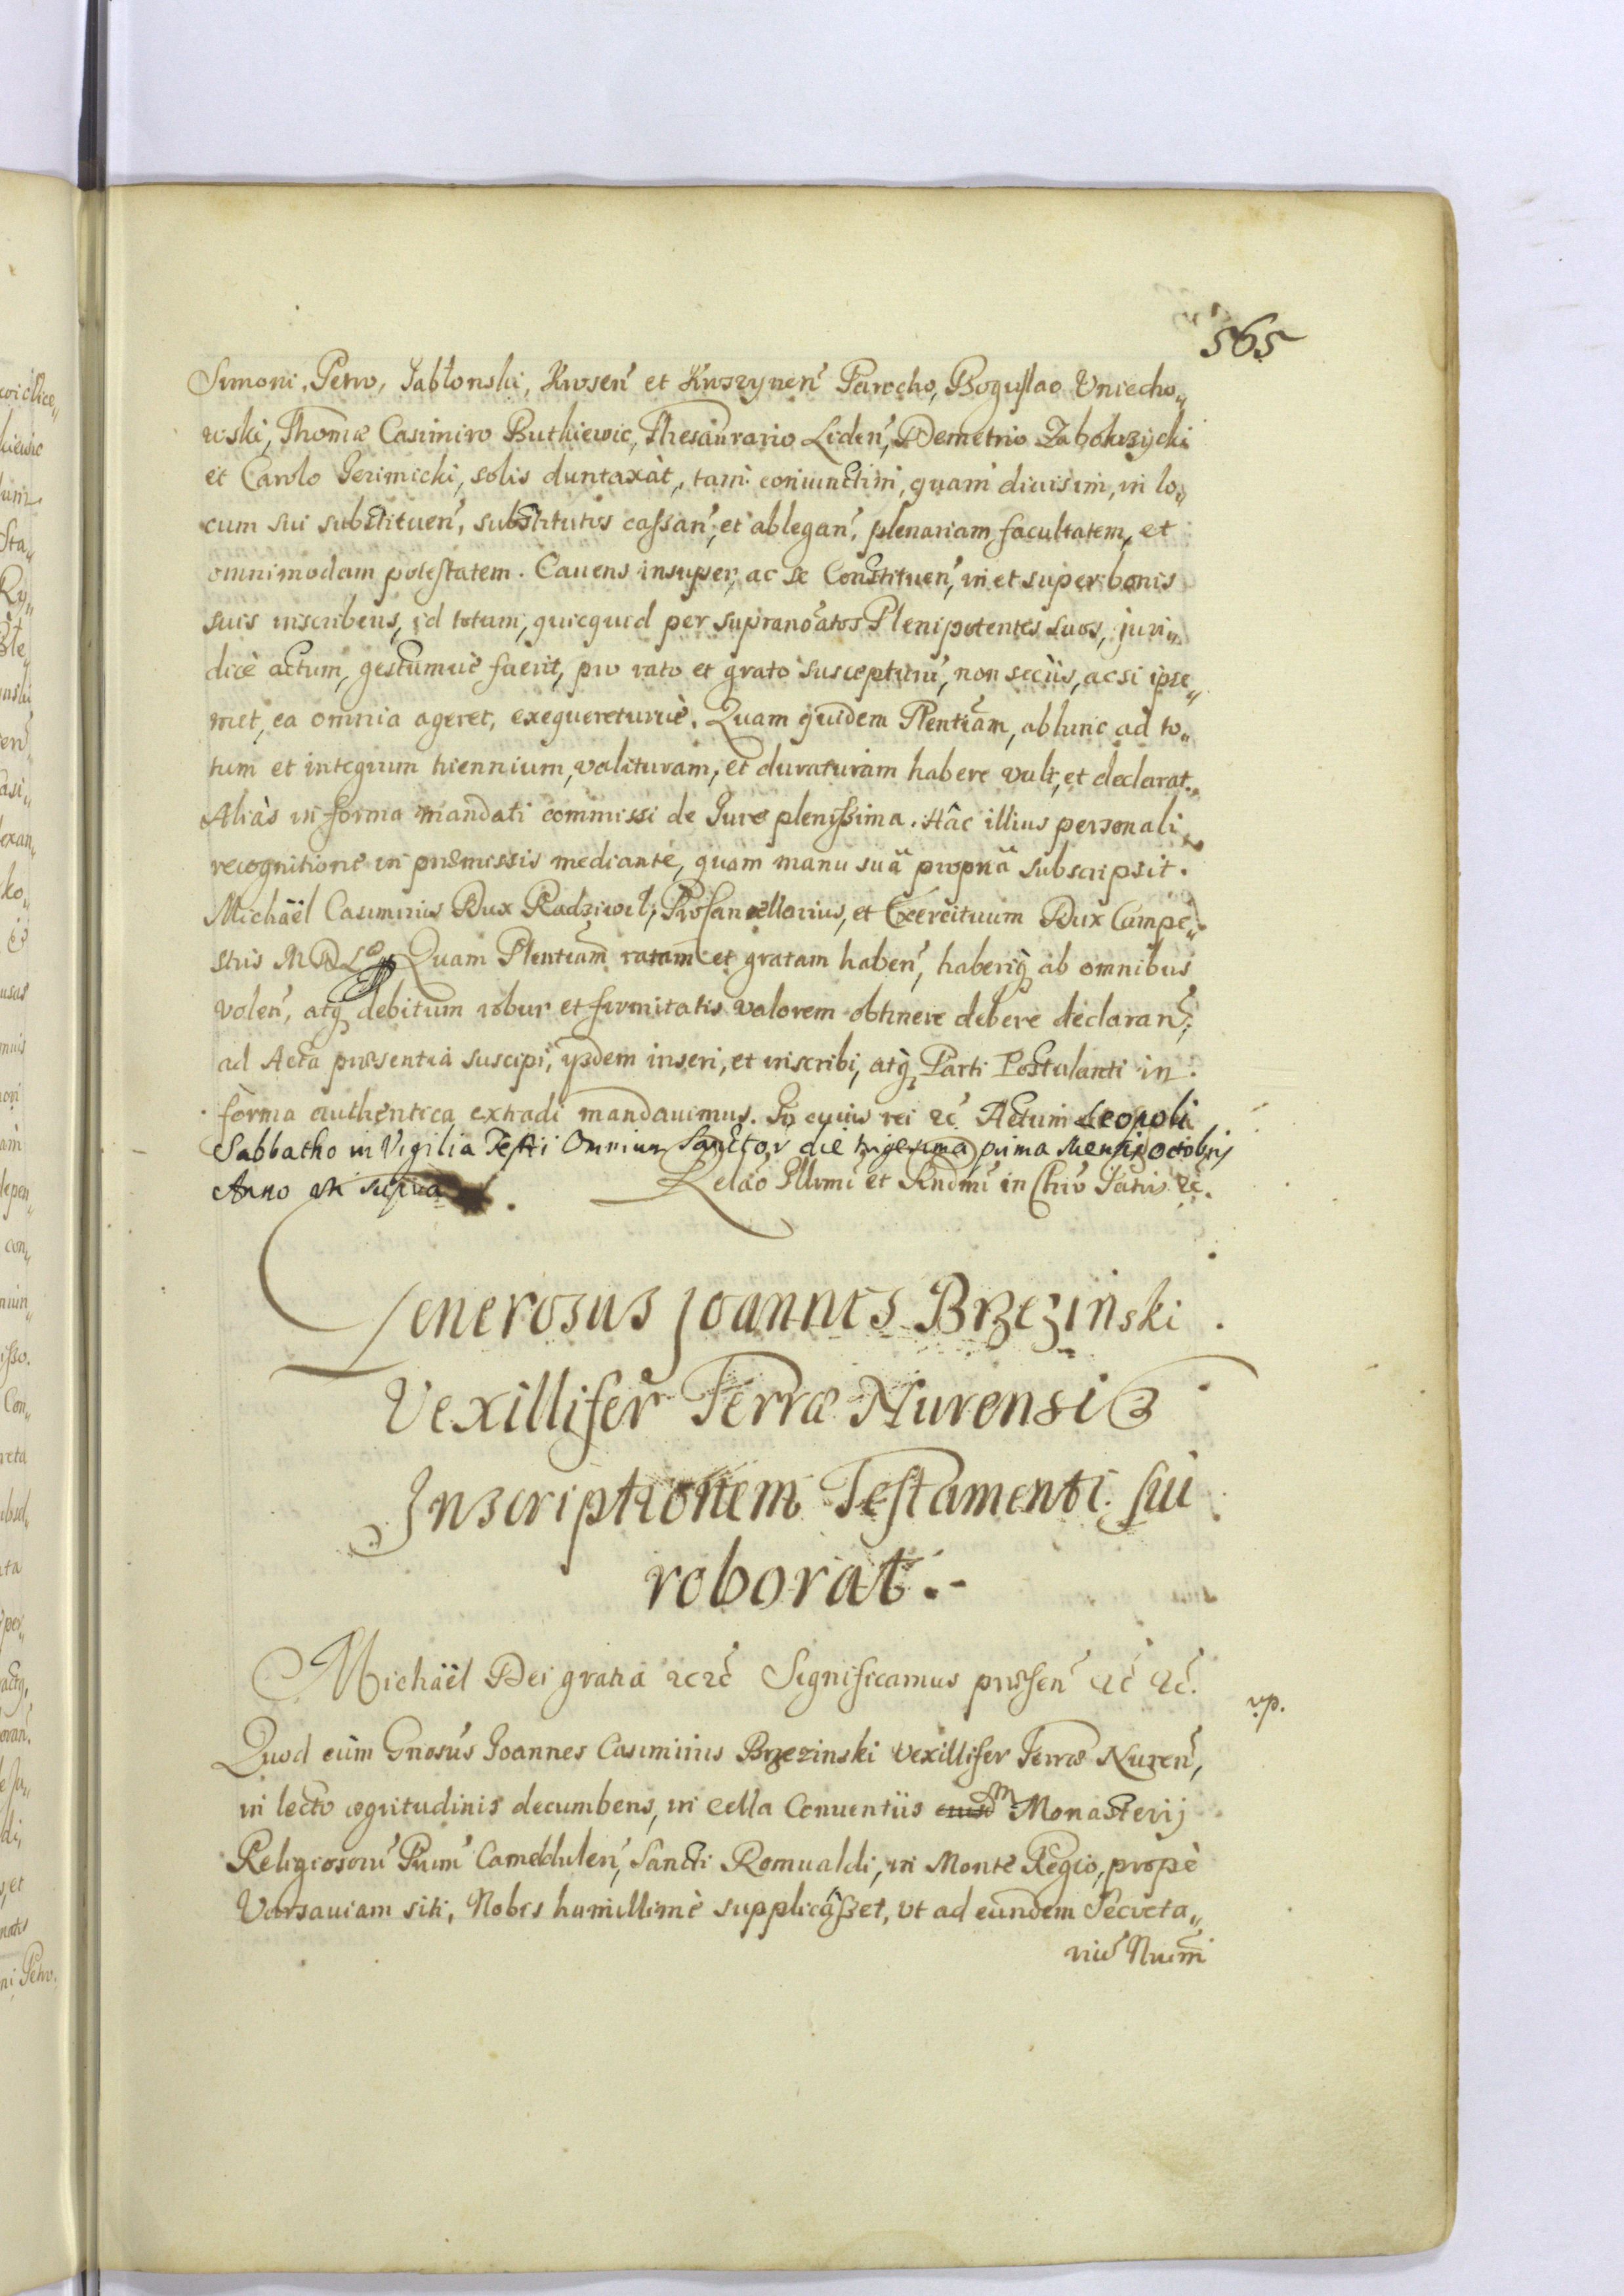 565
Simoni, Petro, Jabłonski, Krosen̄ et Kroszynen̄ Parocho, Boguslao Vniecho„
wski, Thomæ Casimiro Butkiewic, Thesaurario Liden̄, Demetrio Zabokrzycki
et Carolo Jezimicki, solis duntaxàt, tam coniunctim, quam diuisim, in lo„
cum sui substituen̄, substitutos cassan̄, et ablegan̄, plenariam facultatem, et
omnimodam potestatem. Cauens insuper, ac se Constituen̄, in et super bonis
suis inscribens, id totum, quicquid per supranoãtos Plenipotentes suos, juri„
dicè actum, gestumuè fuerit, pro rato et grato susceptum̄, non secùs, ac si ipse„
met, ea omnia ageret, exequereturuè. Quam quidem Plentiãm, ab hinc ad to„
tum et integrum triennium, valituram, et duraturam habere vult, et declarat.„
Aliàs in forma mandati commissi de Jure plenissima. Hâc illius personali
recognitione in præmissis mediante, quam manu suâ propriâ subscripsit.
Michäël Casimirus Dux Radziwił, ProCancellarius, et Exercituum Dux Campe„
stris M D L. Quam Plentiãm ratam et gratam haben̄, haberiq̨ ab omnibus
volen̄, atq̨ debitum robur et firmitatis valorem obtinere debere declaran̄,
ad Acta præsentia suscipi, ijsdem inseri, et inscribi, atq̨ Parti Postulanti in
forma authentica extradi mandauimus. In cuius rei &c̄ Actum Leopoli
Sabbatho in Vigilia Festi Omnium Sanctor die trigesima prima Mensis Octobris
Anno ut supra. Relaõ Illrmi et Rndmi in Chro Patris &c̄.
Generosus Joannes Brzezinski
Vexillifer Terræ Nurensis
Inscriptionem Testamenti sui
roborat.-
Michäël Dei gratia &c &c̄ Significamus præsen̄ &c̄ &c̄.
vp.
Quod cùm Gnosus Joannes Casimirus Brzezinski Vexillifer Terræ Nuren̄,
in lecto ægritudinis decumbens, in cella Conuentus eiusdm Monasterij
Religiosoru̅ Prum̄ Camedulen̄, Sancti Romualdi, in Monte Regio, propè
Varsauiam siti, Nobis humillimè supplicâsset, vt ad eundem Secreta„
riu̅ Nrum̄